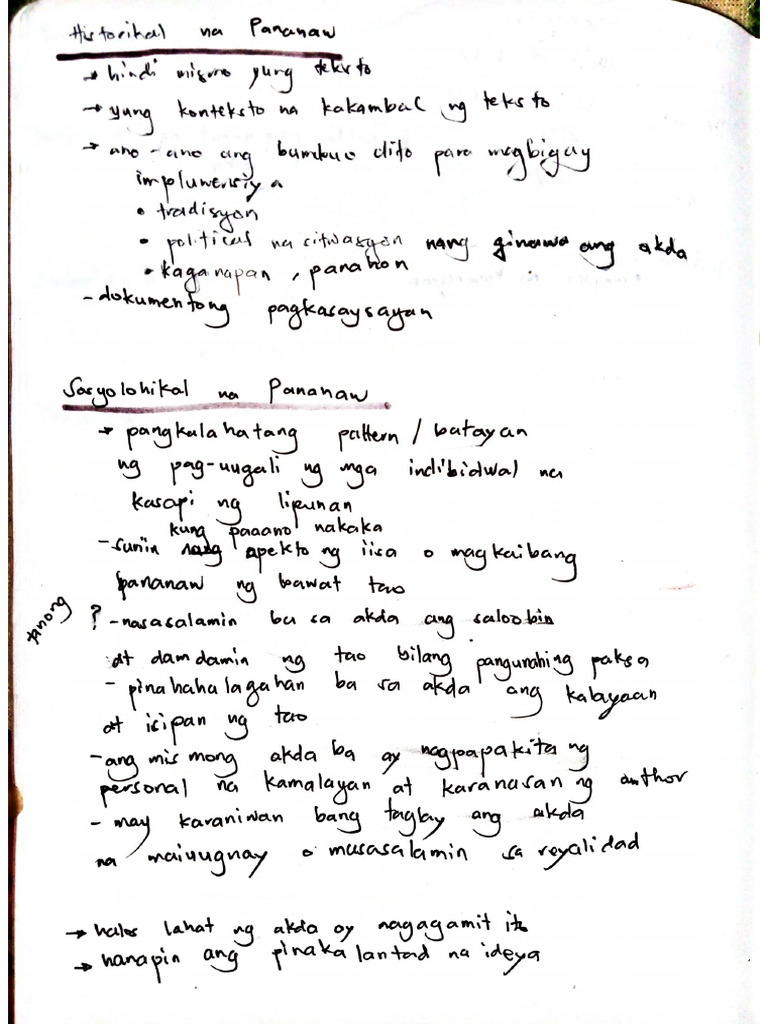 Historikal na Pananaw
→ hindi mismo yung teksto
→ yung konteksto na kakambal ng teksto
→ ano-ano ang bumubuo dito para magbigay
impluwensiya
• tradisyon
• political na sitwasyon nang ginawa ang akda
• kaganapan, panahon
- dokumentong pagkasaysayan
Sosyolohikal na Pananaw
→ pangkalahatang pattern / batayan
ng pag-uugali ng mga indibidwal na
kasapi ng lipunan
kung paaano nakaka
- suriin apekto ng iisa o magkaibang
pananaw ng bawat tao
tanong ? - nasasalamin ba sa akda ang saloobin
at damdamin ng tao bilang pangunahing paksa
- pinahahalagahan ba sa akda ang kalayaan
at isipan ng tao
- ang mismong akda ba ay nagpapakita ng
personal na kamalayan at karanasan ng author
- may karaniwan bang taglay ang akda
na maiuugnay o masasalamin sa reyalidad
→ halos lahat ng akda ay nagagamit ito
→ hanapin ang pinaka lantad na ideya